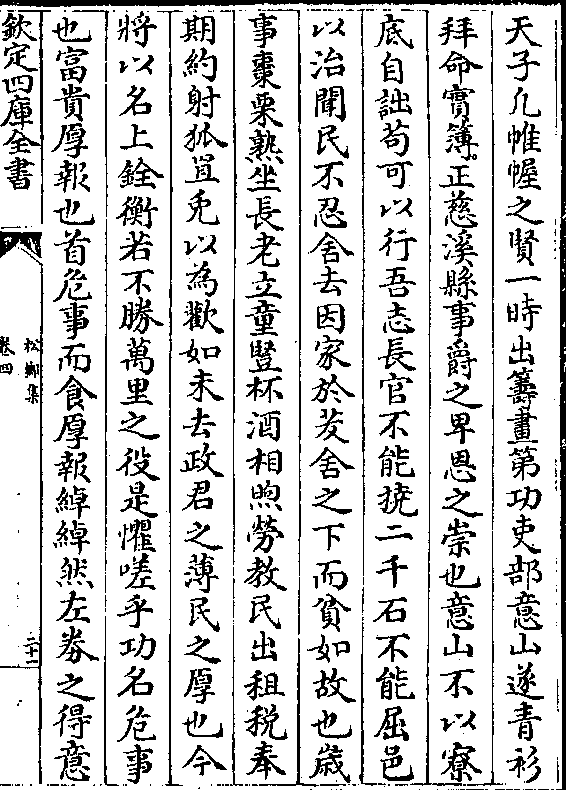 天子凡帷幄之賢一時出籌畫第功吏部意山遂青衫
拜命實簿正慈溪縣事爵之卑恩之崇也意山不以寮
底自詘苟可以行吾志長官不能撓二千石不能屈邑
以治聞民不忍舍去因家於茇舍之下而貧如故也歲
事棗栗熟坐長老立童豎杯酒相煦勞教民出租稅奉
期約射狐罝兔以為歡如未去政君之薄民之厚也今
將以名上銓衡若不勝萬里之役是懼嗟乎功名危事
也富貴厚報也首危事而食厚報綽綽然左券之得意
欽定四庫全書
松鄉集
卷四
二十二